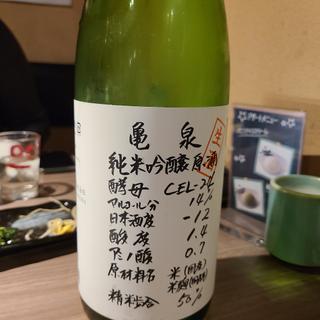 亀泉
生
純米吟醸原酒
酵母 CEL-24
アルコール分 14%
日本酒度 -12
酸度 1.4
アミノ酸 0.7
原材料名 米(国産)
米麹(国産米)
精米歩合 50%
デザートメニュー